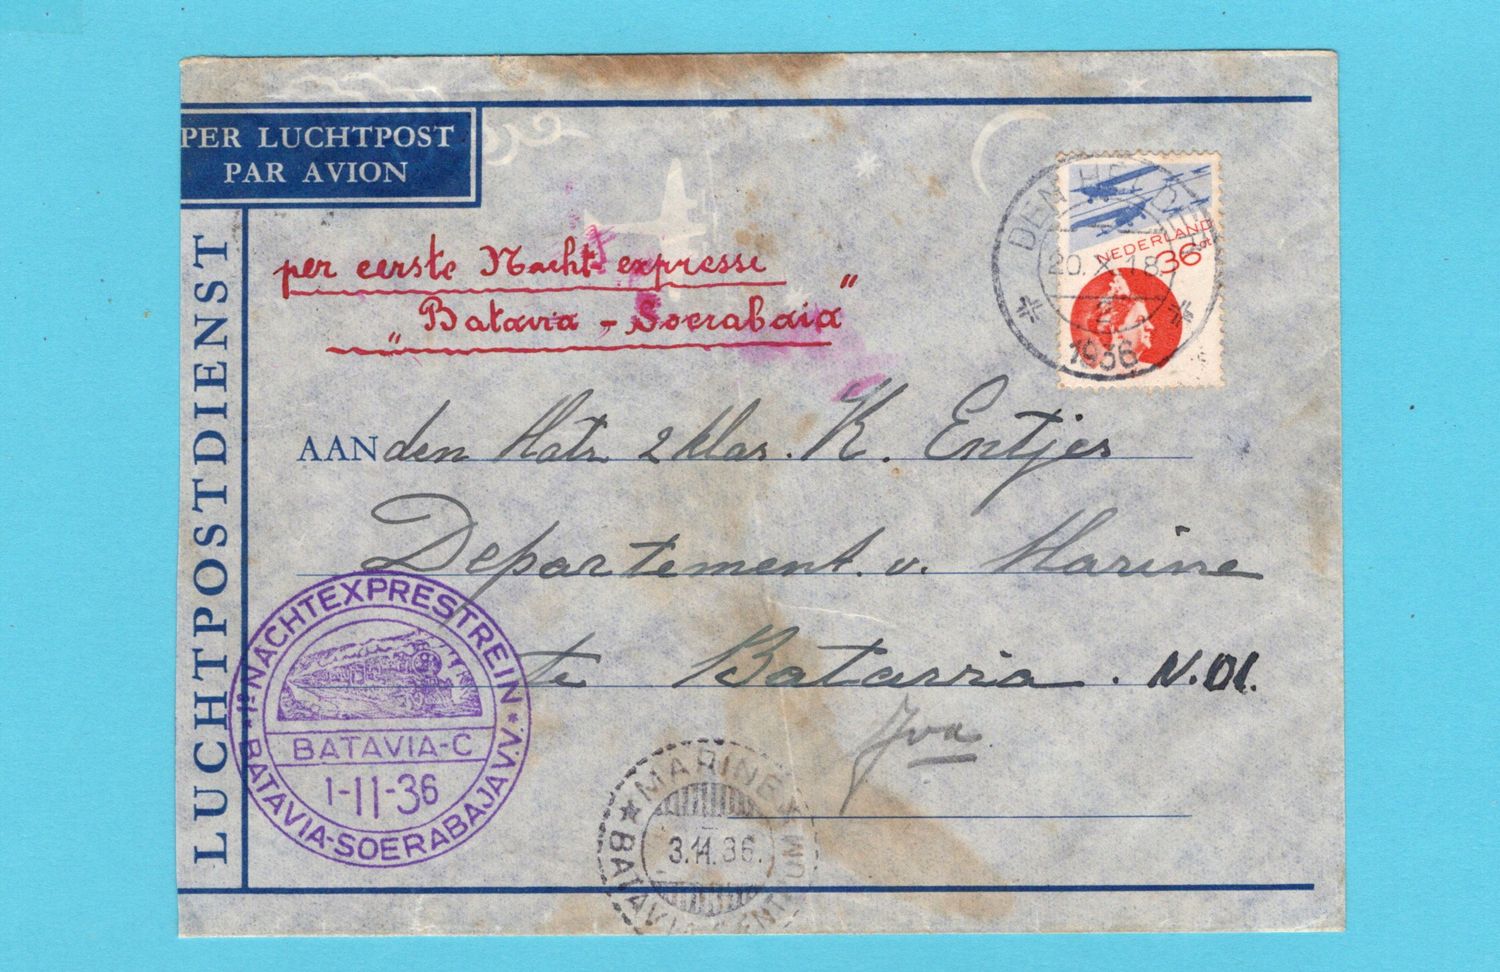 PER LUCHTPOST
PAR AVION
LUCHTPOSTDIENST
per eerste Nacht expresse
"Batavia - Soerabaia"
DEN HELDER
20.X.18
2
1936
NEDERLAND
36 ct
AAN den Matr 2 klas. K. Entjes
Departement. v. Marine
te Batavia. N.O.I.
Java
1e NACHTEXPRESTREIN
BATAVIA-C
1-11-36
BATAVIA-SOERABAJA V.V.
MARINE
3.11.36.
BATAVIA CENTRUM